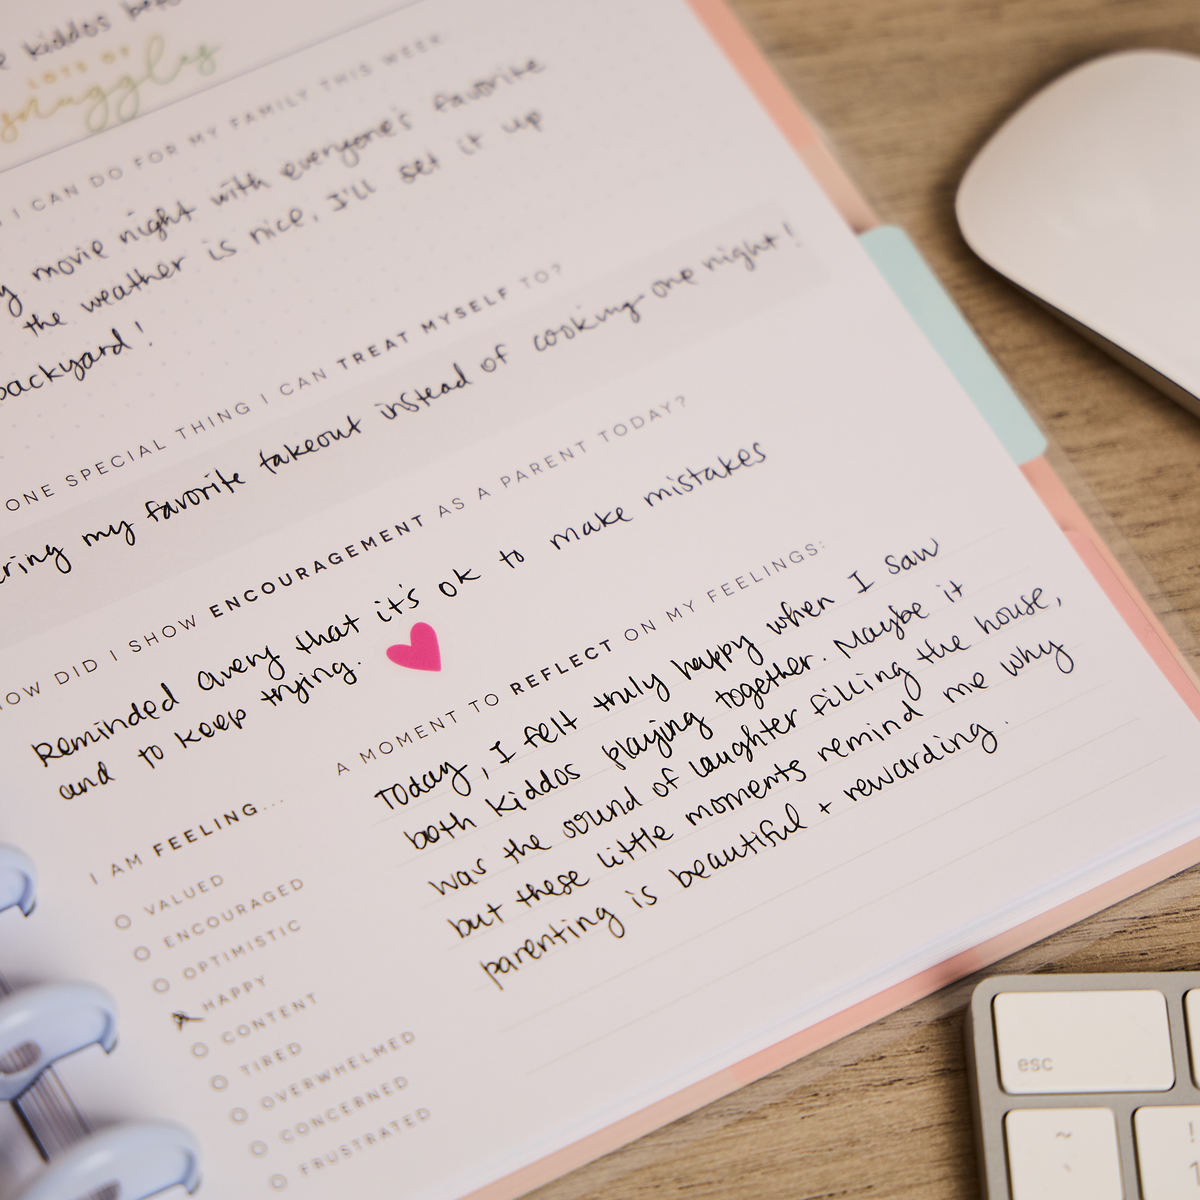 kiddos
LOTS OF
snuggles
I CAN DO FOR MY FAMILY THIS WEEK
movie night with everyone's favorite
the weather is nice, I'll set it up
backyard!
ONE SPECIAL THING I CAN TREAT MYSELF TO?
my favorite takeout instead of cooking one night!
HOW DID I SHOW ENCOURAGEMENT AS A PARENT TODAY?
Reminded Avery that it's ok to make mistakes
and to keep trying.
A MOMENT TO REFLECT ON MY FEELINGS:
Today, I felt truly happy when I saw
both kiddos playing together. Maybe it
was the sound of laughter filling the house,
but these little moments remind me why
parenting is beautiful + rewarding.
I AM FEELING...
VALUED
ENCOURAGED
OPTIMISTIC
HAPPY
CONTENT
TIRED
OVERWHELMED
CONCERNED
FRUSTRATED
esc
~
`
!
1